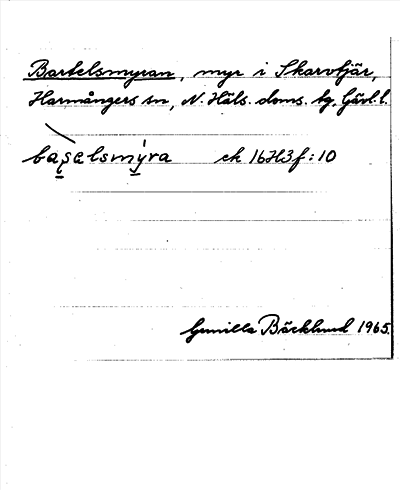 Bartelsmyran, myr i Skarvtjär,
Harmångers sn, N. Häls. doms. tg, Gävl. l.
baṣelsmýra ek 16H3f:10
Gunilla Bäcklund 1965.